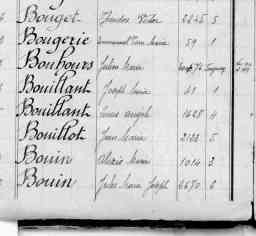 Bouget Théodore Victor 2825 5
Bougerie Emmanuel Pierre Marie 59 1
Bouhours Julien Marie
Bouillant Joseph Marie 41 1
Bouillant Louis Joseph 1628 4
Bouillot Jean Marie 2102 5
Bouin Alexis Marie 1014 3
Bouin Jules Marie Joseph 2670 6